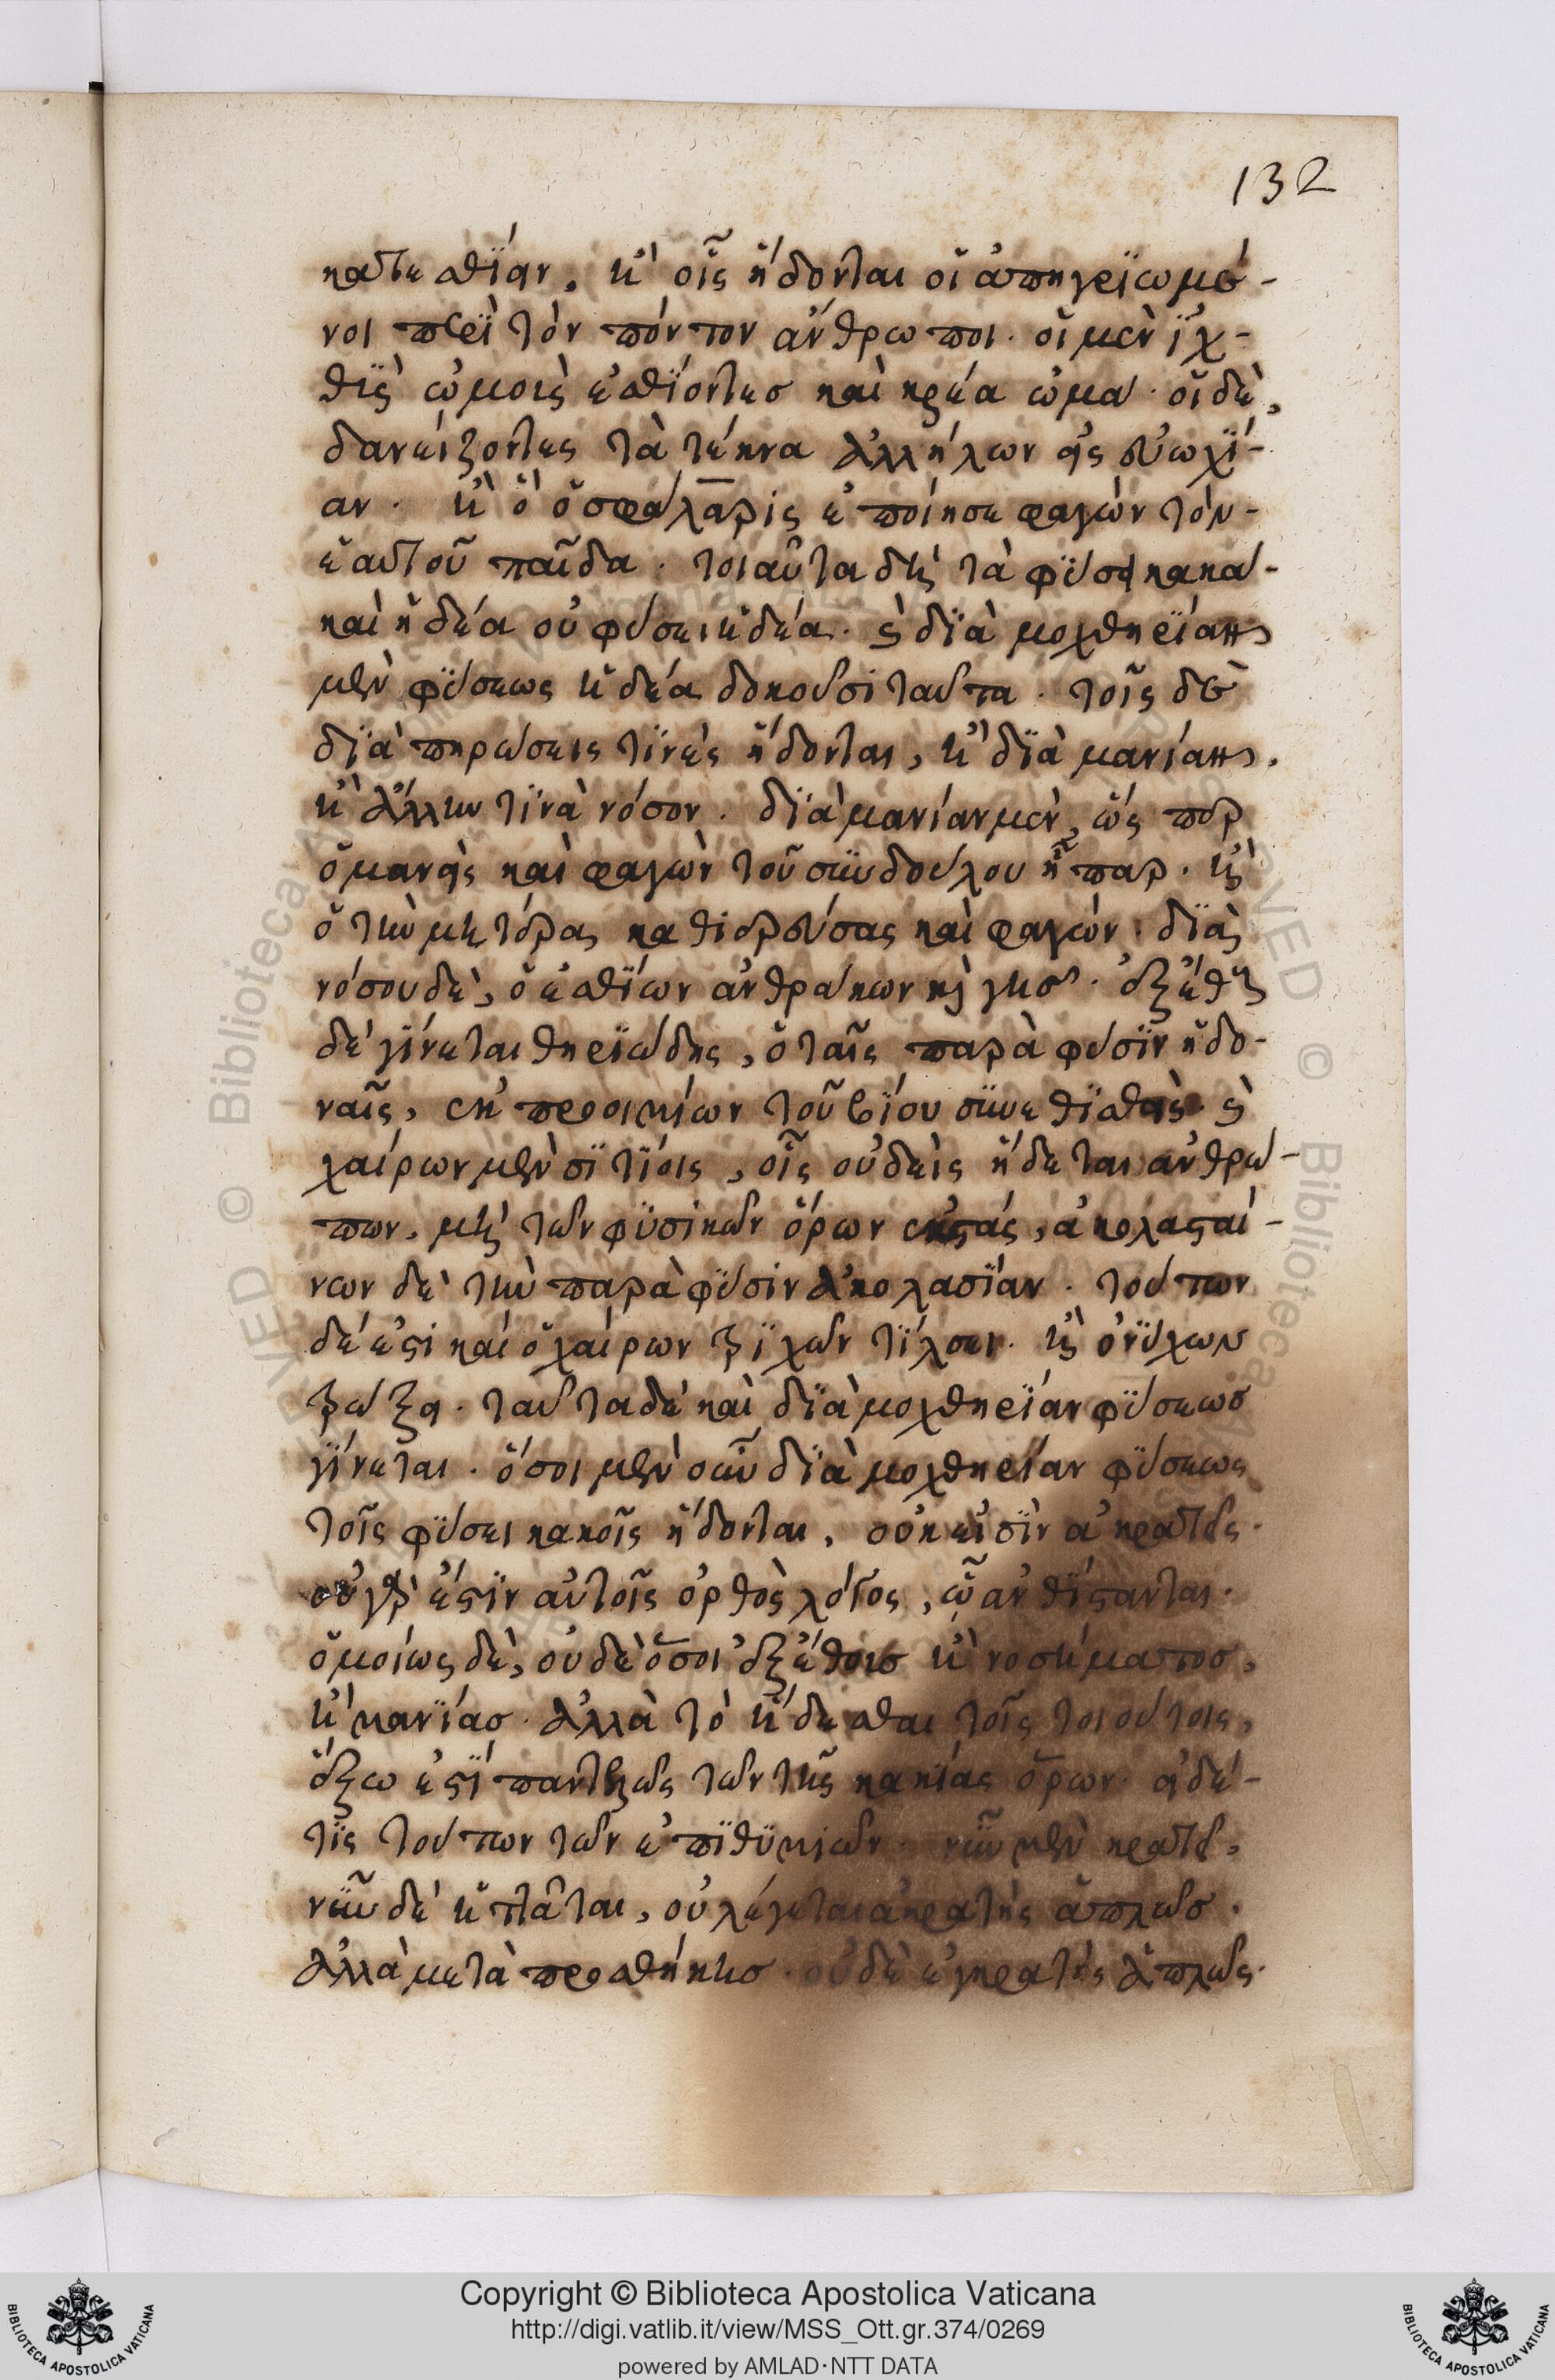 132
κατεσθίειν. ἢ οἷς ἥδονται οἱ ἀπηγριωμέ-
νοι περὶ τὸν πόντον ἄνθρωποι. οἱ μὲν ἰχ-
θῦς ὠμοὺς ἐσθίοντες καὶ κρέα ὠμά. οἱ δὲ,
δανείζοντες τὰ τέκνα ἀλλήλων εἰς εὐωχί-
αν. ἢ ὃ ὁ φάλαρις ἐποίησε φαγὼν τὸν
ἑαυτοῦ παῖδα. τοιαῦτα δὴ τὰ φύσει κακὰ
καὶ ἡδέα οὐ φύσει ἡδέα. διὰ μοχθηρίαν
μὲν φύσεως ἡδέα δοκοῦσι ταῦτα. τοῖς δὲ
διὰ πηρώσεις τινὲς ἥδονται, ἢ διὰ μανίαν,
ἢ ἄλλην τινὰ νόσον. διὰ μανίαν μὲν, ὥσπερ
ὁ μανεὶς καὶ φαγὼν τοῦ συνδούλου ἧπαρ. καὶ
ὁ τὴν μητέρα καθιερεύσας καὶ φαγών. διὰ
νόσου δὲ, ὁ ἐσθίων ἄνθρακων καὶ γῆς. ἐξ ἔθους
δὲ γίνεται θηριώδης, ὁ ταῖς παρὰ φύσιν ἡδο-
ναῖς, ἐκ προοιμίων τοῦ βίου συνεθισθεὶς.
χαίρων μὲν σιτίοις, οἷς οὐδεὶς ἥδεται ἀνθρώ-
πων, μὴ τῶν φυσικῶν ὅρων ἐκστάς, ἀκολασταί-
νων δὲ τὴν παρὰ φύσιν ἀκολασίαν. τούτων
δέ ἐστι καὶ ὁ χαίρων τριχῶν τίλσει. καὶ ὀνύχων
τρώξει. ταῦτα δὲ καὶ διὰ μοχθηρίαν φύσεως
γίνεται. ὅσοι μὲν οὖν διὰ μοχθηρίαν φύσεως
τοῖς φύσει κακοῖς ἥδονται, οὐκ εἰσὶν ἀκρατεῖς.
οὐ γάρ ἐστιν αὐτοῖς ὀρθὸς λόγος, ᾧ ἀνθίστανται.
ὁμοίως δὲ, οὐδὲ ὅσοι ἐξ ἔθους ἢ νοσήματος,
ἢ μανίας. ἀλλὰ τὸ ἥδεσθαι τοῖς τοιούτοις,
ἔξω ἐστὶ παντελῶς τῶν τῆς κακίας ὅρων. εἰ δέ
τις τούτων τῶν ἐπιθυμιῶν. νῦν μὲν κρατεῖ,
νῦν δὲ ἡττᾶται, οὐ λέγεται ἀκρατὴς ἁπλῶς.
ἀλλὰ μετὰ προσθήκης. οὐδὲ ἐγκρατὴς ἁπλῶς.
Copyright © Biblioteca Apostolica Vaticana
http://digi.vatlib.it/view/MSS_Ott.gr.374/0269
powered by AMLAD·NTT DATA